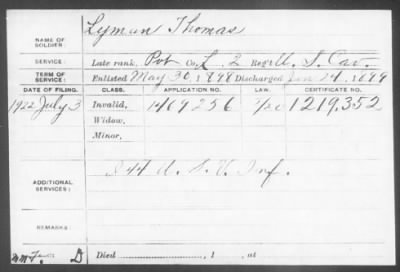 NAME OF SOLDIER: Lyman Thomas
SERVICE: Late rank, Pvt Co. L. 2 Reg't U. S. Cav.
TERM OF SERVICE: Enlisted May 30, 1898 Discharged Jan 24, 1899
DATE OF FILING. CLASS. APPLICATION NO. LAW. CERTIFICATE NO.
1922 July 3 Invalid, 1409256 1219.352
Widow,
Minor,
ADDITIONAL SERVICES: 44 U. S. V. Inf.
REMARKS:
D Died , 1 , at